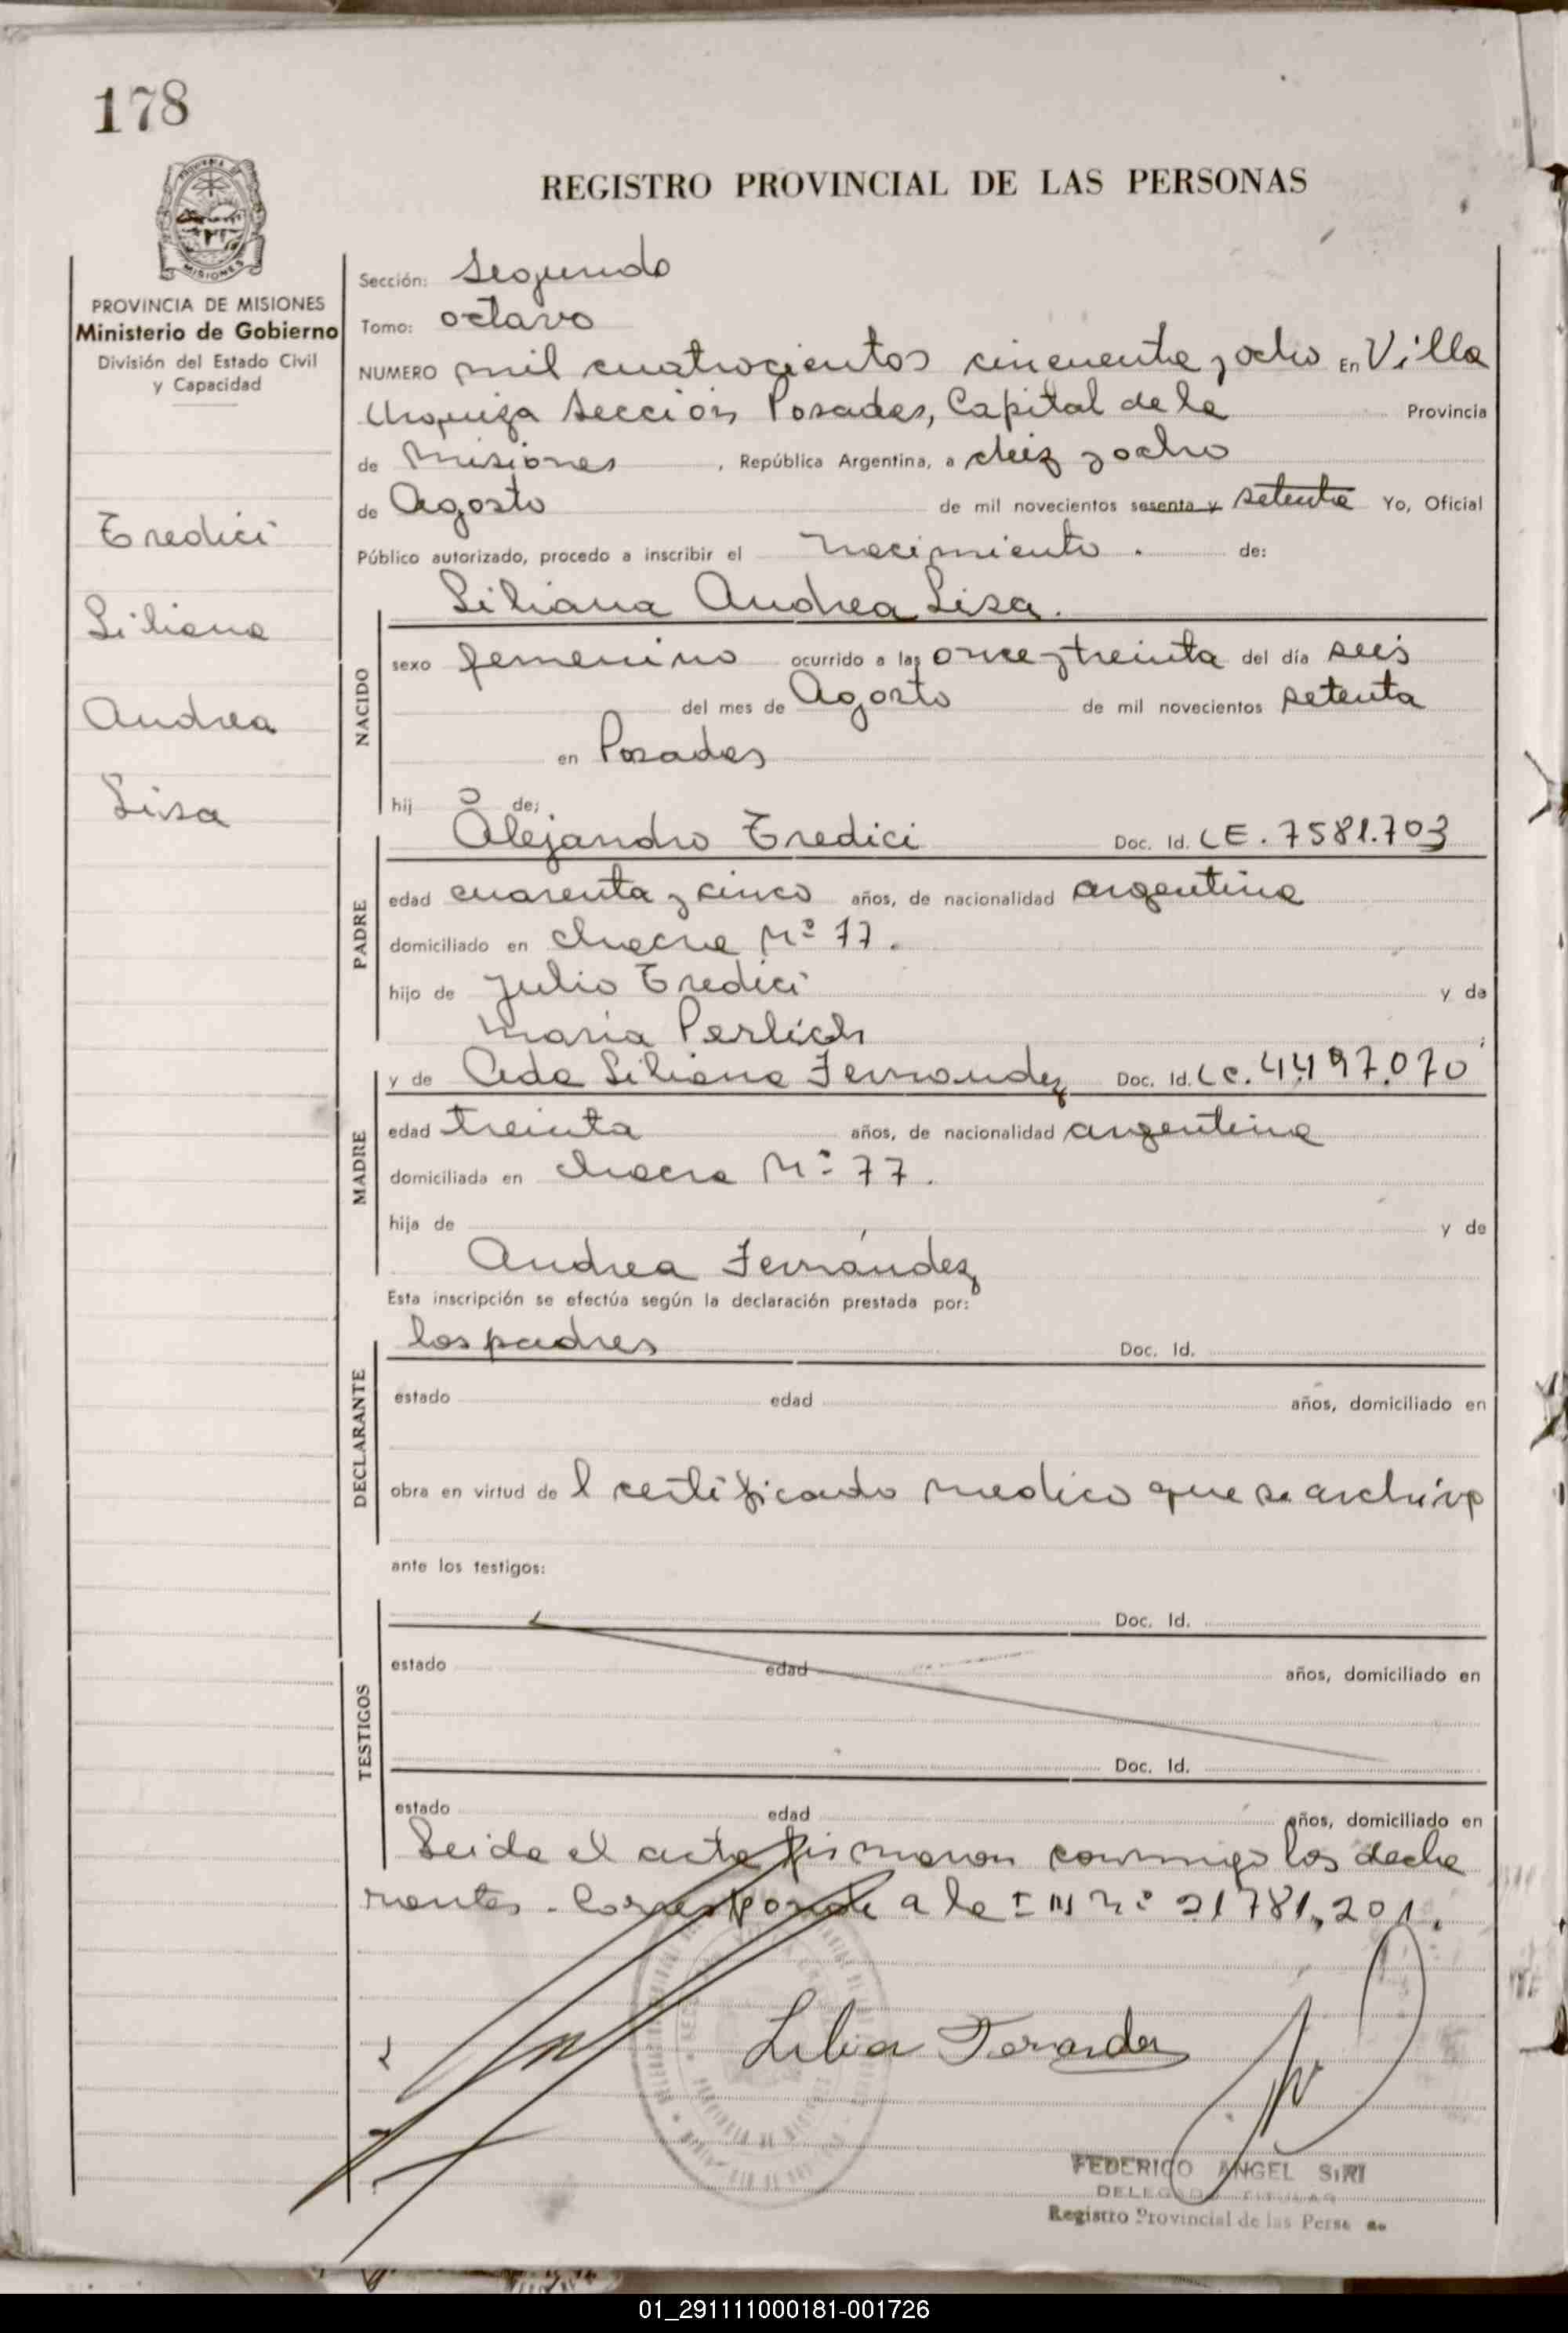 178
REGISTRO PROVINCIAL DE LAS PERSONAS
PROVINCIA DE MISIONES
Ministerio de Gobierno
División del Estado Civil
y Capacidad
Tredici
Liliana
Andrea
Lisa
Sección: Segunda
Tomo: octavo
NUMERO mil cuatrocientos cincuenta y ocho En Villa
Urquiza Sección Posadas, Capital de la Provincia
de Misiones, República Argentina, a diez y ocho
de Agosto de mil novecientos sesenta y setenta Yo, Oficial
Público autorizado, procedo a inscribir el nacimiento. de:
Liliana Andrea Lisa.
NACIDO
sexo femenino ocurrido a las once y treinta del día seis
del mes de Agosto de mil novecientos setenta
en Posadas
hij a de;
PADRE
Alejandro Tredici Doc. Id. LE. 7581.703
edad cuarenta y cinco años, de nacionalidad argentina
domiciliado en chacra Nº 77.
hijo de Julio Tredici y de
Maria Perlich ;
MADRE
y de Ada Liliana Fernandez Doc. Id. LC. 4.497.070
edad treinta años, de nacionalidad argentina
domiciliada en chacra Nº 77.
hija de y de
Andrea Fernández
Esta inscripción se efectúa según la declaración prestada por:
DECLARANTE
los padres Doc. Id.
estado edad años, domiciliado en
obra en virtud de l certificado medico que se archiva
ante los testigos:
TESTIGOS
Doc. Id.
estado edad años, domiciliado en
Doc. Id.
estado edad años, domiciliado en
Leida el acta firmaron conmigo los decla
rantes. Corresponde a la I N nº 21781.201.
FEDERICO ANGEL SIRI
DELEGADO TITULAR
Registro Provincial de las Perso
01_291111000181-001726